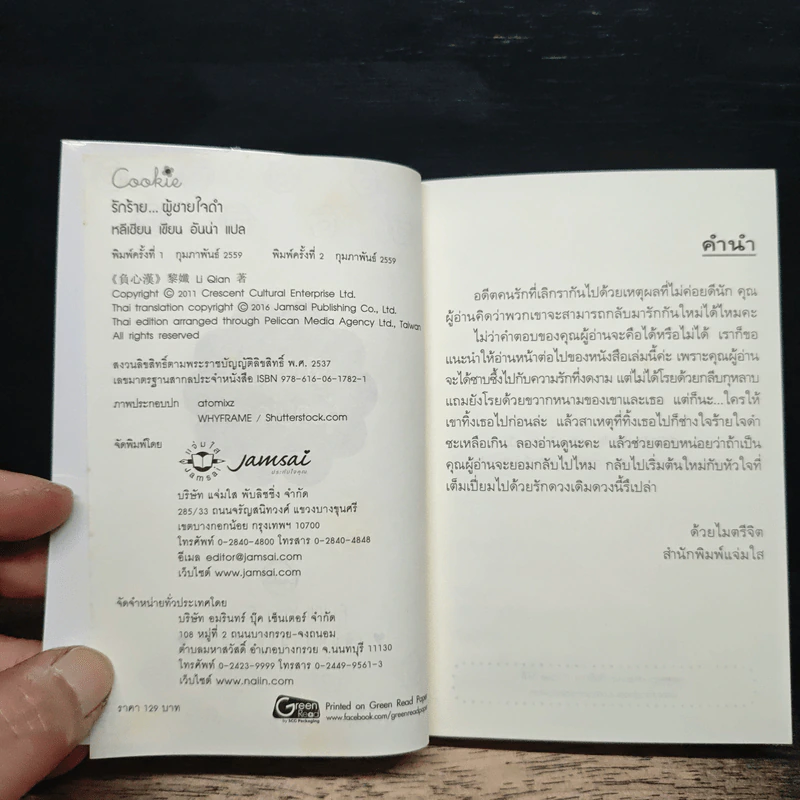 Cookie
รักร้าย... ผู้ชายใจดำ
หลีเชียน เขียน อันน่า แปล
พิมพ์ครั้งที่ 1 กุมภาพันธ์ 2559 พิมพ์ครั้งที่ 2 กุมภาพันธ์ 2559
《負心漢》黎孅 Li Qian 著
Copyright © 2011 Crescent Cultural Enterprise Ltd.
Thai translation copyright © 2016 Jamsai Publishing Co., Ltd.
Thai edition arranged through Pelican Media Agency Ltd., Taiwan
All rights reserved
สงวนลิขสิทธิ์ตามพระราชบัญญัติลิขสิทธิ์ พ.ศ. 2537
เลขมาตรฐานสากลประจำหนังสือ ISBN 978-616-06-1782-1
ภาพประกอบปก atomixz
WHYFRAME / Shutterstock.com
จัดพิมพ์โดย
แจ่มใส
Jamsai
Jamsai
ประทับใจคุณ
บริษัท แจ่มใส พับลิชชิ่ง จำกัด
285/33 ถนนจรัญสนิทวงศ์ แขวงบางขุนศรี
เขตบางกอกน้อย กรุงเทพฯ 10700
โทรศัพท์ 0-2840-4800 โทรสาร 0-2840-4848
อีเมล editor@jamsai.com
เว็บไซต์ www.jamsai.com
จัดจำหน่ายทั่วประเทศโดย
บริษัท อมรินทร์ บุ๊ค เซ็นเตอร์ จำกัด
108 หมู่ที่ 2 ถนนบางกรวย-จงถนอม
ตำบลมหาสวัสดิ์ อำเภอบางกรวย จ.นนทบุรี 11130
โทรศัพท์ 0-2423-9999 โทรสาร 0-2449-9561-3
เว็บไซต์ www.naiin.com
ราคา 129 บาท
Green Read
by SCG Packaging
Printed on Green Read Paper
www.facebook.com/greenreadpaper
คำนำ
อดีตคนรักที่เลิกรากันไปด้วยเหตุผลที่ไม่ค่อยดีนัก คุณ
ผู้อ่านคิดว่าพวกเขาจะสามารถกลับมารักกันใหม่ได้ไหมคะ
ไม่ว่าคำตอบของคุณผู้อ่านจะคือได้หรือไม่ได้ เราก็ขอ
แนะนำให้อ่านหน้าต่อไปของหนังสือเล่มนี้ค่ะ เพราะคุณผู้อ่าน
จะได้ซาบซึ้งไปกับความรักที่งดงาม แต่ไม่ได้โรยด้วยกลีบกุหลาบ
แถมยังโรยด้วยขวากหนามของเขาและเธอ แต่ก็นะ...ใครให้
เขาทิ้งเธอไปก่อนล่ะ แล้วสาเหตุที่ทิ้งเธอไปก็ช่างใจร้ายใจดำ
ซะเหลือเกิน ลองอ่านดูนะคะ แล้วช่วยตอบหน่อยว่าถ้าเป็น
คุณผู้อ่านจะยอมกลับไปไหม กลับไปเริ่มต้นใหม่กับหัวใจที่
เต็มเปี่ยมไปด้วยรักดวงเดิมดวงนี้รึเปล่า
ด้วยไมตรีจิต
สำนักพิมพ์แจ่มใส